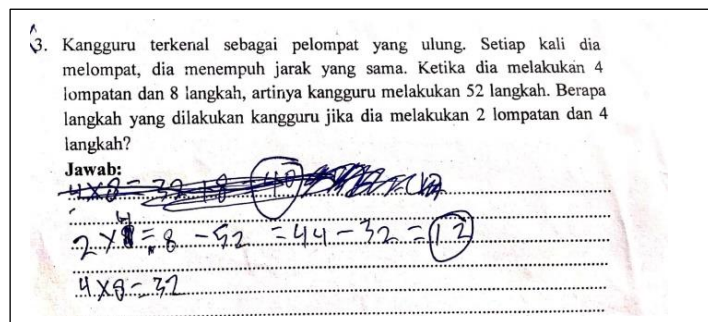 3. Kangguru terkenal sebagai pelompat yang ulung. Setiap kali dia
melompat, dia menempuh jarak yang sama. Ketika dia melakukan 4
lompatan dan 8 langkah, artinya kangguru melakukan 52 langkah. Berapa
langkah yang dilakukan kangguru jika dia melakukan 2 lompatan dan 4
langkah?
Jawab:
4x8 = 32 + 8 = 40
2 x 4 = 8 - 52 = 44 - 32 = 12
4 x 8 = 32